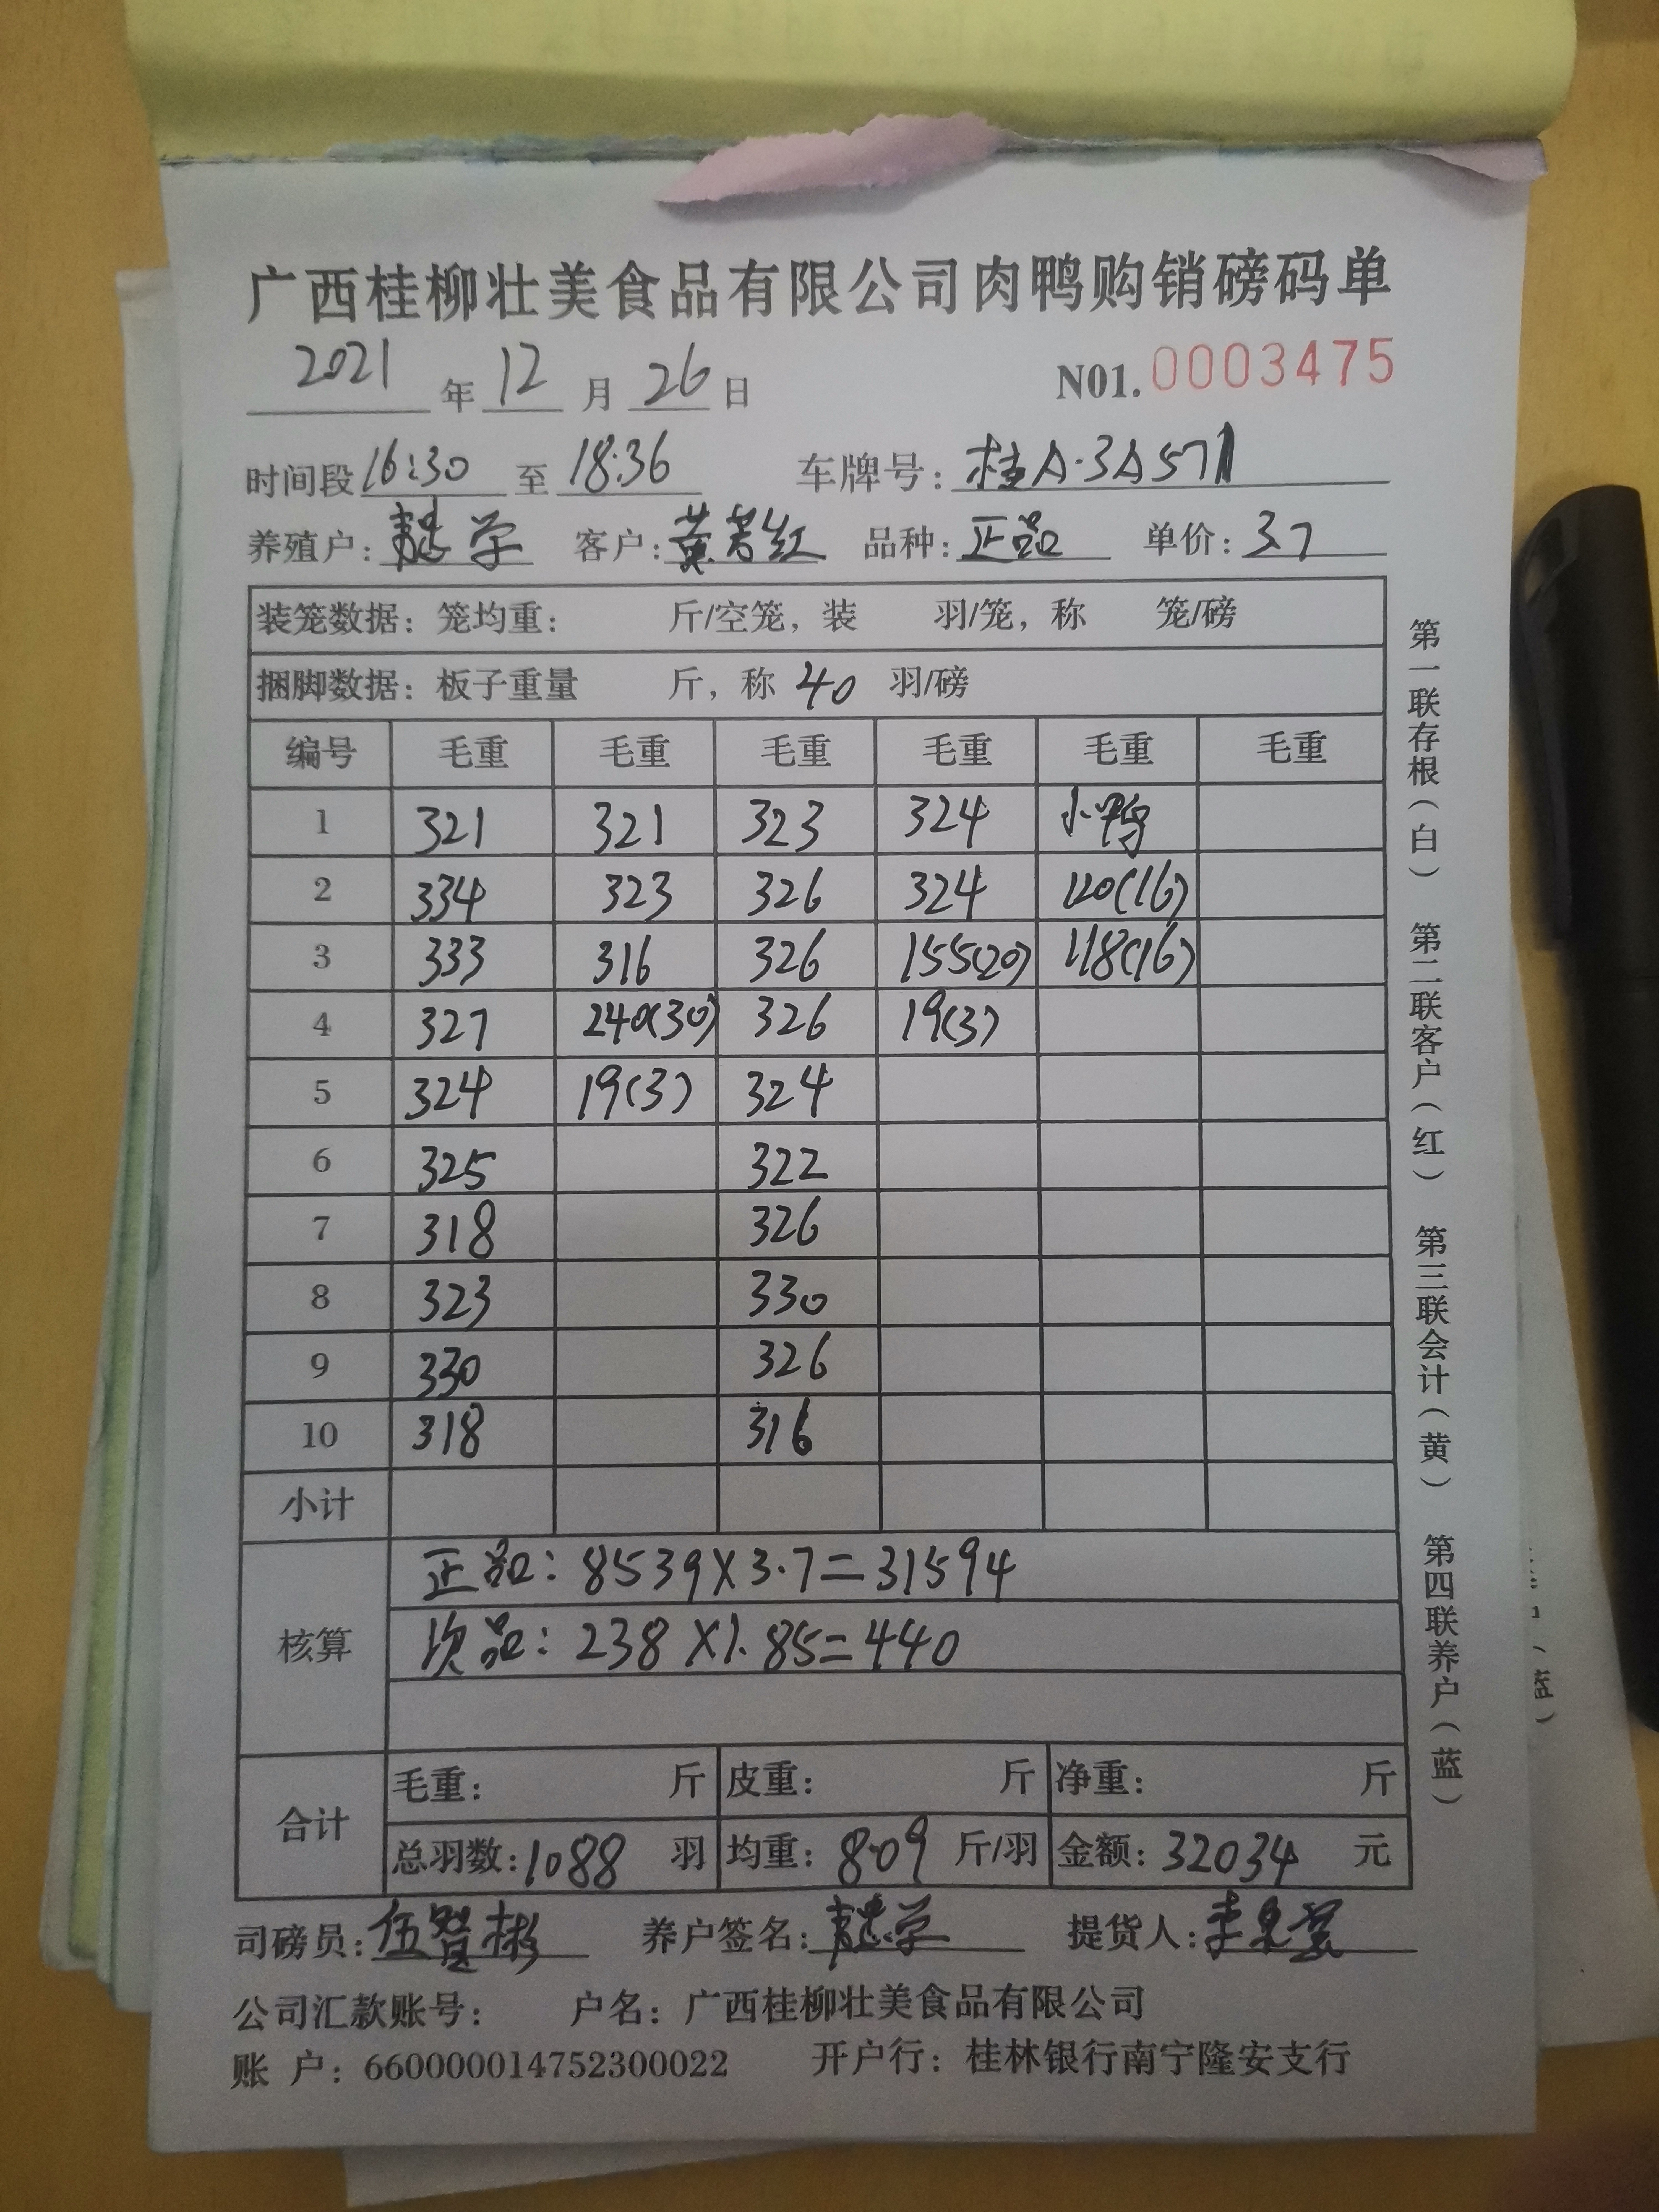 广西桂柳壮美食品有限公司肉鸭购销磅码单
2021年12月26日 N01.0003475
时间段16:30至18:36 车牌号:桂A·3A571
养殖户: 客户:黄 红 品种:正品 单价:3.7
装笼数据:笼均重: 斤/空笼,装 羽/笼,称 笼/磅
捆脚数据:板子重量 斤,称 40 羽/磅
编号 毛重 毛重 毛重 毛重 毛重 毛重
1 321 321 323 324 小鸭
2 334 323 326 324 120(16)
3 333 316 326 155(20) 118(16)
4 327 240(30) 326 19(3)
5 324 19(3) 324
6 325 322
7 318 326
8 323 330
9 330 326
10 318 316
小计
核算
正品:8539X3.7=31594
次品:238X1.85=440
合计
毛重: 斤 皮重: 斤 净重: 斤
总羽数:1088 羽 均重:8.09 斤/羽 金额:32034 元
司磅员:伍贤彬 养户签名: 提货人:
公司汇款账号: 户名:广西桂柳壮美食品有限公司
账 户:660000014752300022 开户行:桂林银行南宁隆安支行
第一联存根(白) 第二联客户(红) 第三联会计(黄) 第四联养户(蓝)